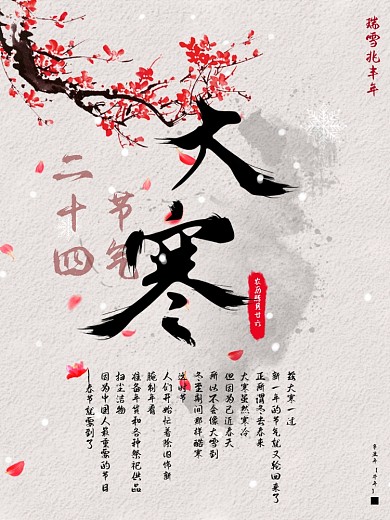 瑞雪兆丰年
大寒
二十四
节气
大寒一过
新一年的节气就又轮回来了
正所谓冬去春来
大寒虽然寒冷
但因为已近春天
所以不会像大雪到
冬至期间那样酷寒
这时节
人们开始忙着除旧饰新
腌制年肴
准备年货和各种祭祀供品
扫尘洁物
因为中国人最重要的节日
—春节就要到了